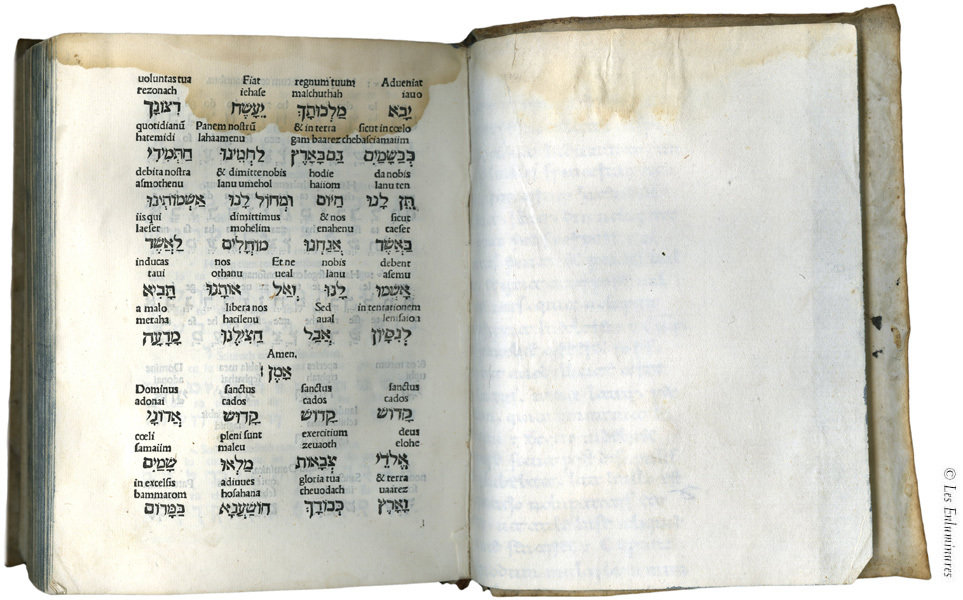 uoluntas tua Fiat regnum tuum Adueniat
rezonach iehase malchuthah iauo
יָבֹא מַלְכוּתָךְ יֵעָשֶׂה רִצוֹנֶךְ
quotidianũ Panem nostrũ & in terra sicut in cœlo
hatemidi lahaamenu gam baarez chebasciamaiim
כְּבַשָּׁמַיִם גַם בָּאָרֶץ לַחְמֵינוּ הַתְּמִידִי
debita nostra & dimitte nobis hodie da nobis
asmothenu lanu umehol haiom lanu ten
תֵּן לָנוּ הַיוֹם וּמְחוֹל לָנוּ אַשְׁמוֹתֵינוּ
iis qui dimittimus & nos sicut
laeser mohelim enahenu caeser
כַּאֲשֶׁר אֲנַחְנוּ מוֹחֲלִים לַאֲשֶׁר
inducas nos Et ne nobis debent
taui othanu ueal lanu asemu
אָשְׁמוּ לָנוּ וְאַל אוֹתָנוּ תָּבִיא
a malo libera nos Sed in tentationem
meraha hacilenu aual lenisaion
לְנִסָּיוֹן אֲבָל הַצִּילֵנוּ מֵרָעָה
Amen.
אָמֵן׃
Dominus sanctus sanctus sanctus
adonai cados cados cados
קָדוֹשׁ קָדוֹשׁ קָדוֹשׁ אֲדוֹנָי
cœli pleni sunt exercitium deus
samaiim maleu zeuaoth elohe
אֱלֹהֵי צְבָאוֹת מַלְאוּ שָׁמַיִם
in excelsis adiuues gloria tua & terra
bammarom hosahana cheuodach uaarez
וָאָרֶץ כְּבוֹדָךְ הוֹשַׁעֲנָא בַּמָּרוֹם
© Les Enluminures